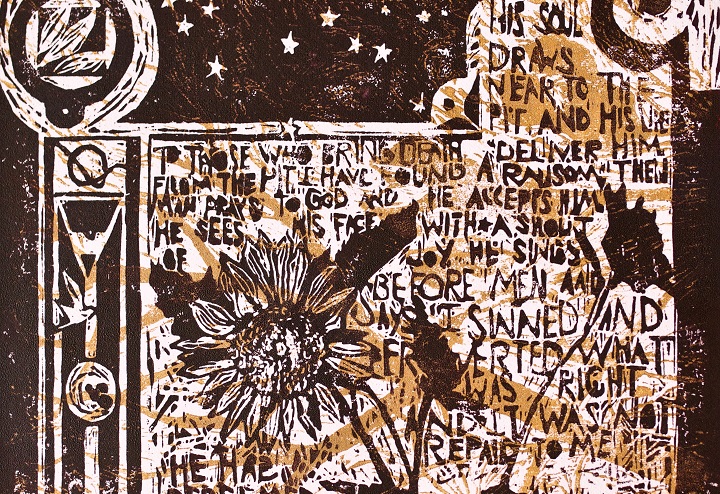 HIS SOUL
DRAWS
NEAR TO THE
PIT AND HIS LIFE
TO THOSE WHO BRING DEATH "DELIVER HIM
FROM THE PIT I HAVE FOUND A RANSOM" THEN
MAN PRAYS TO GOD AND HE ACCEPTS HIM
HE SEES HIS FACE WITH A SHOUT
OF JOY. HE SINGS
BEFORE "MEN AND
SAYS "I SINNED" AND
PERVERTED WHAT
WAS RIGHT
AND IT WAS NOT
REPAID TO ME
HE HAS